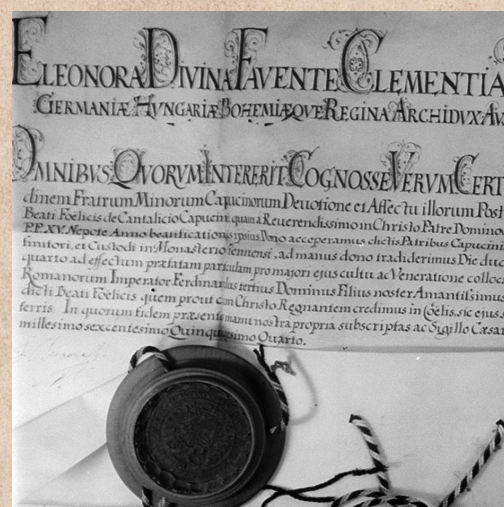 ELEONORA DIVINA FAVENTE CLEMENTIA
GERMANIÆ HVNGARIÆ BOHEMIÆQVE REGINA ARCHIDVX AV
OMNIBVS QVORVM INTERERIT COGNOSSE VERVM CERT
dinem Fratrum Minorum Capucinorum Deuotione et Affectu illorum Post
Beati Foelicis de Cantalicio Capucini quam a Reuerendissimo in Christo Patre Domino
P.P. XV. Nepote Anno beautificationis ipsius Dono acceperamus dictis Patribus Capucini
finitori, et Custodi in Monasterio ad manus dono tradiderimus Die duc
quarto ad effectum præfatam particulam pro majori ejus cultu ac Veneratione colloc
Romanorum Imperator Ferdinandus tertius Dominus Filius noster Amantissimu
dicti Beati Foelicis quem prout cum Christo Regnantem credimus in Coelis, sic ejus
ferris. In quorum fidem præsentes manu nostra propria subscriptas ac Sigillo Cæsar
millesimo sexcentesimo Quinquagesimo Quarto.